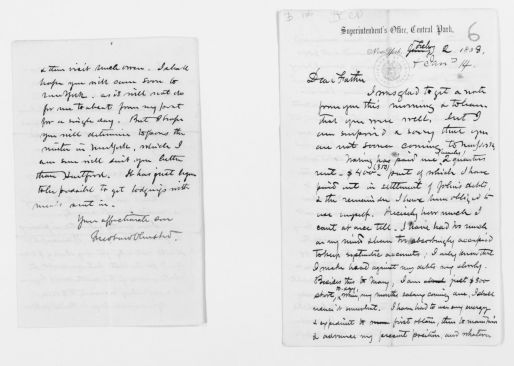 6
Superintendent's Office, Central Park,
New-York, Feby 2 1858.
Dear Father
I was glad to get a note
from you this morning & to learn
that you were well, but I
am surprised & sorry that you
are not sooner coming to New York
has paid me a quarter's
rent - $400 (350) part of which I have
paid out in settlement of John's debts,
& the remainder I have been obliged to
use myself. Precisely how much I
can't at once tell. I have had so much
on my mind & been so absorbingly occupied
to keep systematic accounts; I only know that
I make head against my debts very slowly.
Besides this to Mary, I am just $300
short,
my month's salary coming due, I shall
I have had to use my energy
& expedient to first obtain, then to maintain
& advance my present position, and whatever
& then visit much over. I shall
hope you will come soon to
New York. as it will not do
for me to absent from my post
for a single day. But I hope
you will determine to pass the
winter in New York, which I
am sure will suit you better
than Hartford. It has just begun
to be possible to get lodgings with
Your affectionate son
Fred Law Olmsted.